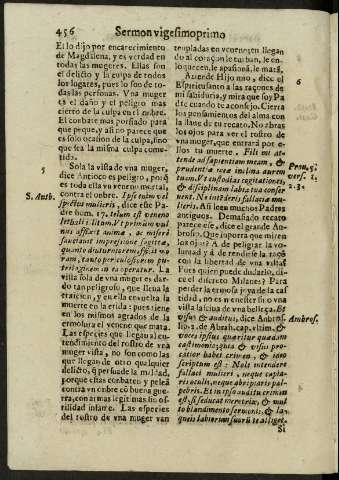 456 Sermon vigesimoprimo
Et lo dijo por encarecimiento
de Magdalena, y es verdad en
todas las mugeres. Ellas son
el delicto y la culpa de todos
los lugares, pues lo son de to-
das las personas. Vna muger
es el daño y el peligro mas
cierto de la culpa en el nõbre.
El conbate mas porfiado para
que peque, y asi no parece que
es solo ocasion de la culpa, sino
que sea la misma culpa come-
tida.
5
Sola la vista de vna muger,
dice Antioco es peligro, porq̃
es toda ella vn veneno mortal,
S. Anth.
contra el õbre. Ipse enim vel
spectus mulieris, dice este Pa-
dre hom. 17. telum est veneno
lethali illitum. Vt primum vul-
nus affixit anima, ac miserè
sauciauit impressione sagittæ,
quanto diuturnior est, affixit mo-
ram, tanto periculosiorem pu-
trilaginem in ea operatur. La
vista sola de vna muger es dar-
do tan peligroso, que lleua la
traicion, y en ella enbuelta la
muerte en la erida: pues tiene
en los mismos agrados de la
ermosura el veneno que mata.
Las especies que llegan al en-
tendimiento del rostro de vna
muger vista, no son como las
que llegan de otro qualquier
delicto, q̃ persuade la maldad,
porque estas conbaten y peleã
contra vn onbre cõ buena gue-
rra, con armas legitimas sin os-
tilidad infame. Las especies
del rostro de vna muger van
templadas en veneno: en llegan
do al coraçon le turban, le en-
loquecen, le apasionã, le matã.
6
Atiende Hijo mio, dice el
Espiritu santo à las raçones de
mi sabiduria, y mira que soy Pa
dre quando te aconsejo. Cierra
los pensamientos del alma con
la llaue de tu recato. No abras
los ojos para ver el rostro de
vna muger, que entrarà por e-
llos tu muerte. Fili mi at-
tende ad sapientiam meam, &
Prou. 5.
prudentiæ meæ inclina aurem
vers. 1.
tuam. Vt custodias cogitationes,
2. 3.
& disciplinam labia tua conser-
uent. Ne intẽderis fallaciæ mu-
lieris. Asi leen muchos Padres
antiguos. Demasiado recato
parece ese, dice el grande An-
brosio. Que inporta que miren
los ojos? A de peligrar la vo-
luntad y à de rendirse la raçõ
con la libertad de vna vista?
Pues quien puede dudarlo, di-
ce el discreto Milanes? Para
perder la ermosa joya de la cas
tidad, no es menester sino vna
vista lasciua de vna belleça. Et
visus & auditus, dice Anbro-
Ambros.
sio, l. 2. de Abrah. cap. vltim. &
voces ipsius quæritur quædam
castimonia: quia & visus prouo-
cation habet crimen, & ideo
scriptum est: Noli intendere
fallaci mulieri, neque capia-
ris oculis, neque abripiaris pal-
pebris. Et in ipso auditu crimen
est, si seducat meretrix, & mul
to blandimento sermonis, & la-
queis labiorum suorũ te alliget.
Si